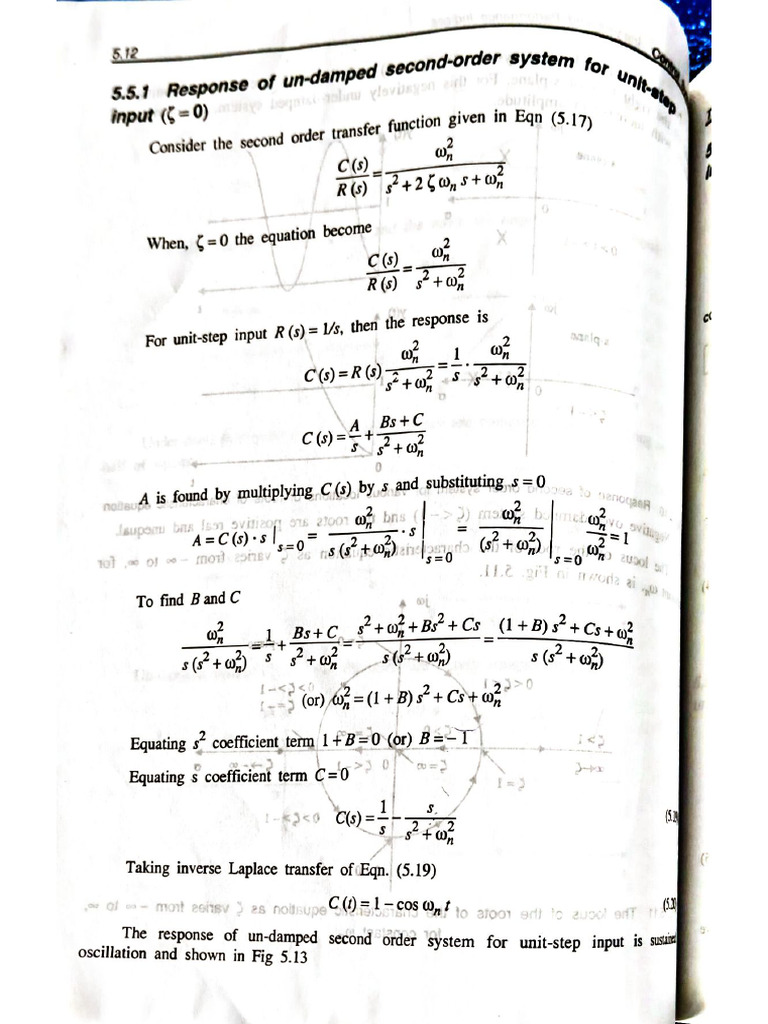 5.12
5.5.1 Response of un-damped second-order system for unit-step
input (ζ = 0)
Consider the second order transfer function given in Eqn (5.17)
C (s) / R (s) = ωn² / (s² + 2 ζ ωn s + ωn²)
When, ζ = 0 the equation become
C (s) / R (s) = ωn² / (s² + ωn²)
For unit-step input R (s) = 1/s, then the response is
C (s) = R (s) ωn² / (s² + ωn²) = 1/s · ωn² / (s² + ωn²)
C (s) = A/s + (Bs + C) / (s² + ωn²)
A is found by multiplying C (s) by s and substituting s = 0
A = C (s) · s |s = 0 = ωn² / (s (s² + ωn²)) · s |s = 0 = ωn² / (s² + ωn²) |s = 0 ωn² / ωn² = 1
To find B and C
ωn² / (s (s² + ωn²)) = 1/s + (Bs + C) / (s² + ωn²) = (s² + ωn² + Bs² + Cs) / (s (s² + ωn²)) = ((1 + B) s² + Cs + ωn²) / (s (s² + ωn²))
(or) ωn² = (1 + B) s² + Cs + ωn²
Equating s² coefficient term 1 + B = 0 (or) B = − 1
Equating s coefficient term C = 0
C(s) = 1/s − s / (s² + ωn²) (5.19
Taking inverse Laplace transfer of Eqn. (5.19)
C (t) = 1 − cos ωn t (5.20
The response of un-damped second order system for unit-step input is sustained
oscillation and shown in Fig 5.13